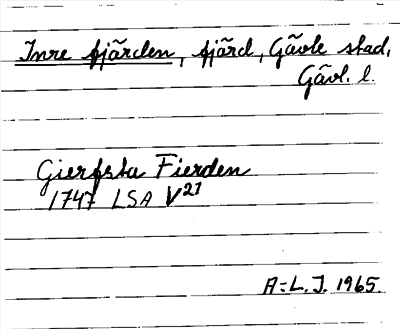 Inre fjärden, fjärd, Gävle stad,
Gävl. l.
Gierfsta Fierden
1747 LSA V21
A:L.J. 1965.